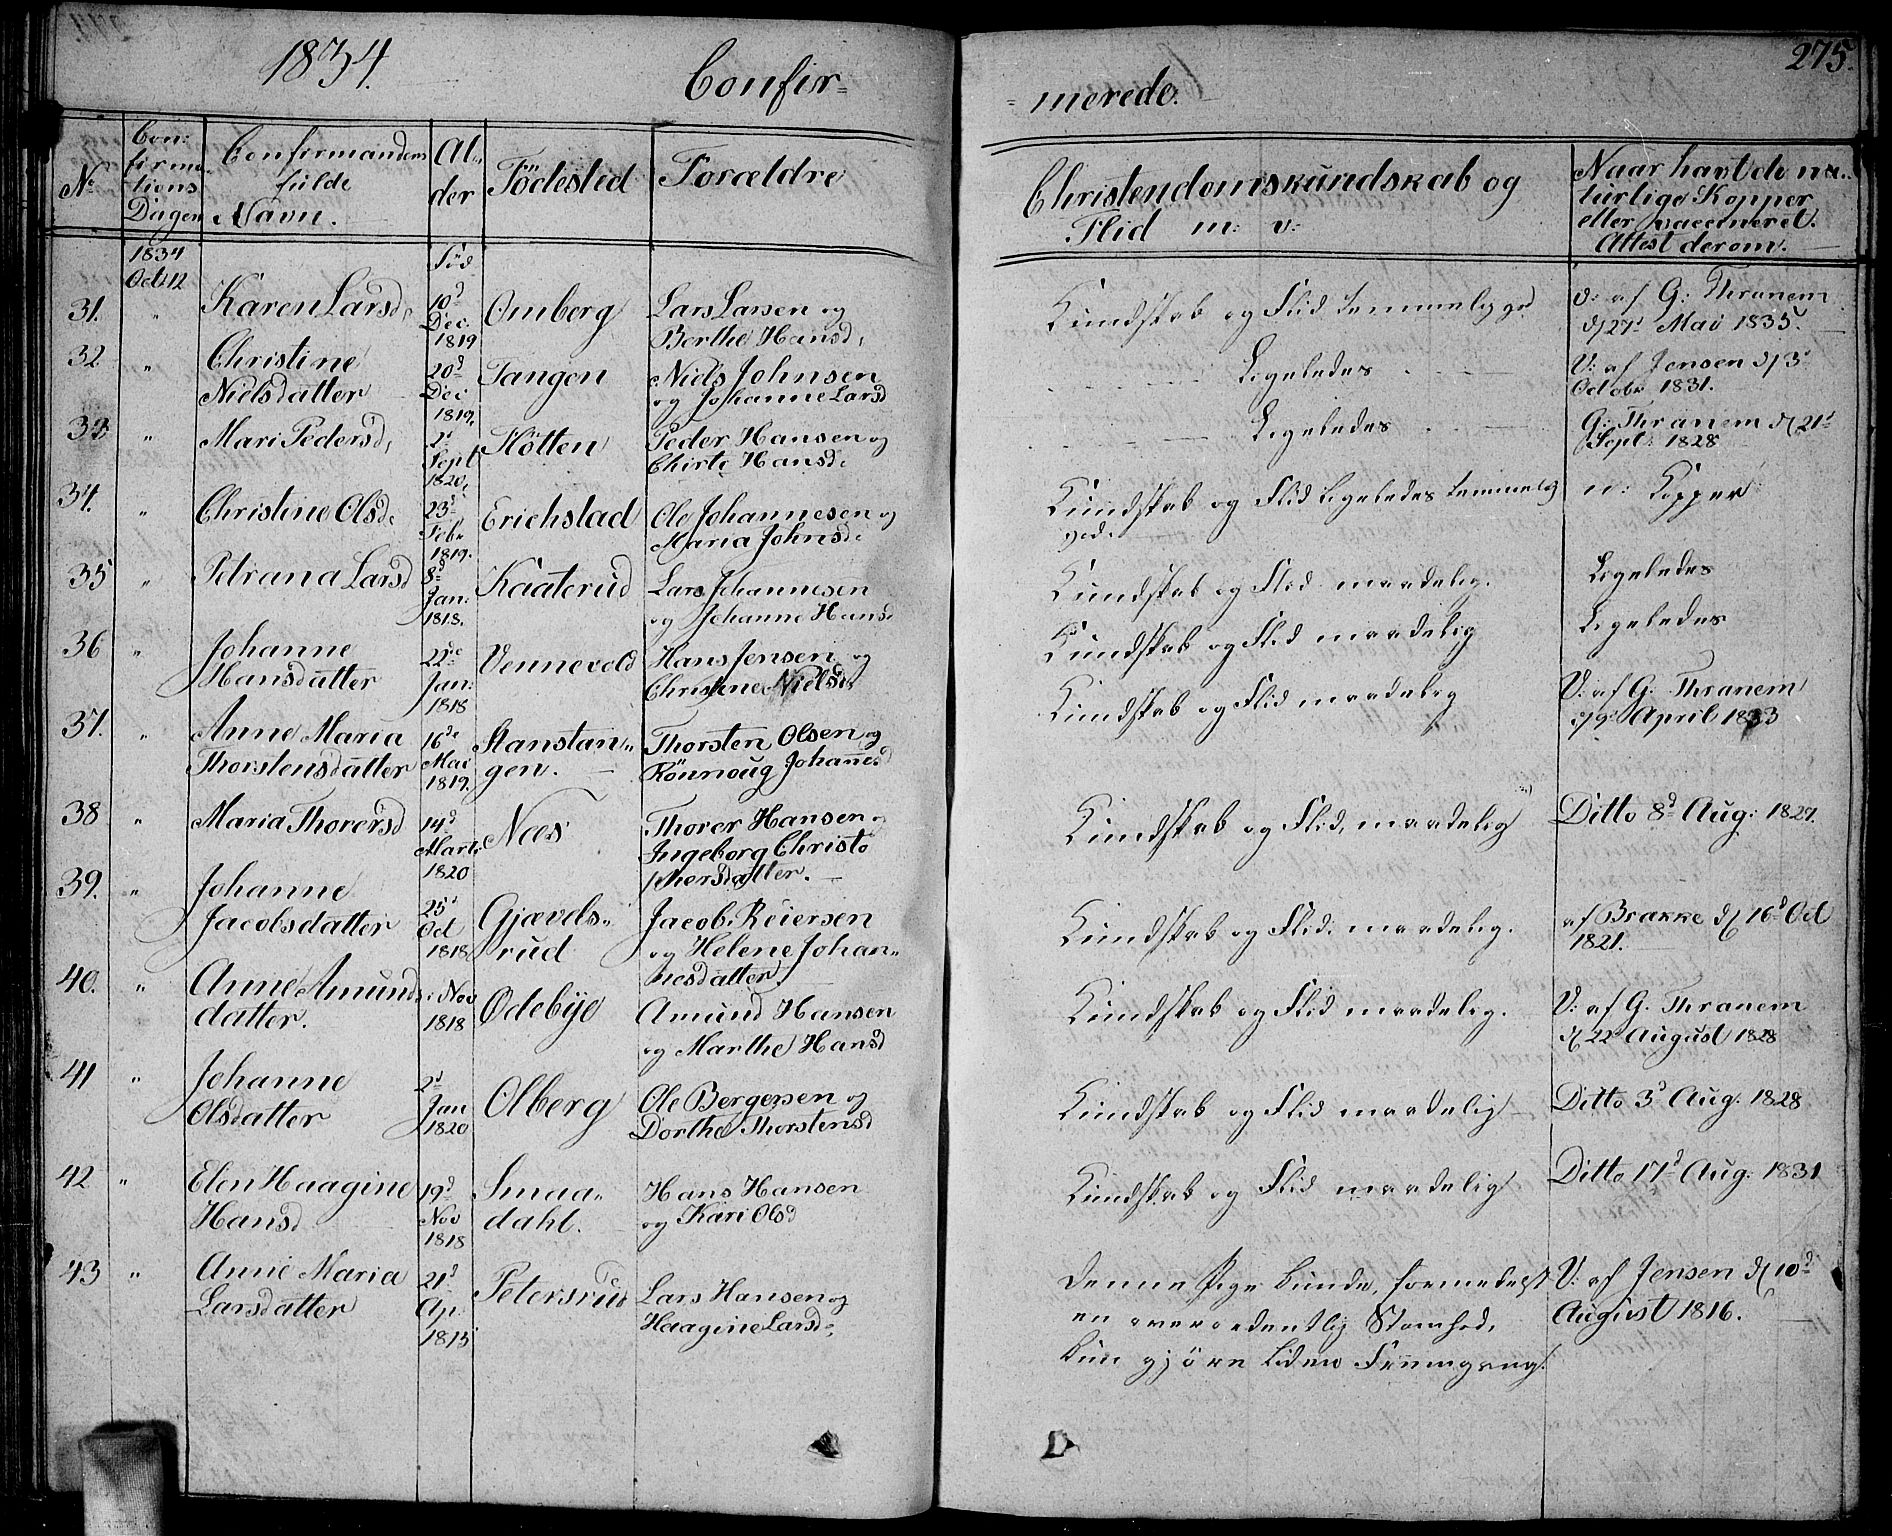 275.
1834. Confir=
=merede.
No Con: firma tions Dagen Confirmandens fulde Navn. Al- der Födested Forældre Christendomskundskab og Flid m: v: Naar havt de na- turlige Kopper eller vaccineret. Attest derom.
1834 Oct. 12 Föd
31. " Karen Larsd. 10d Dec. 1819 Omberg Lars Larsen og Berthe Hansd. Kundskab og Flid temmelig god V: af G: Thranem d 27d Mai 1835.
32 " Christine Nielsdatter 20d Dec 1819. Tangen Niels Johnsen og Johanne Larsd Ligeledes V: af Jensen d 3d Octobr 1831.
33 " Mari Pedersd. 2d Sept 1820. Peder Hansen og Chirte Hansd. Ligeledes G: Thranem d 21d Sept: 1828
34. " Christine Olsd. 23d Febr 1819. Erichstad Ole Johannesen og Maria Johnsd. Kundskab og Flid Ligeledes temmelig god. n: Kopper
35 " Petrana Larsd 8d Jan: 1818. Kaaterud Lars Johannesen og Johanne Hansd Kundskab og Flid maadelig. Ligeledes
36 " Johanne Hansdatter 22de Jan: 1818 Vennevold Hans Jensen og Christine Nielsd. Kundskab og Flid maadelig Ligeledes
37. " Anne Maria Thorstensdatter 16de Mai 1819. Stanstan- gen. Thorsten Olsen og Rönnoug Johannesd Kundskab og Flid maadelig V: af G. Thranem d 9d April 1833
38 " Maria Thorersd 14d Marti 1820 Næs Thorer Hansen og Ingeborg Christo phersdatter. Kundskab og Flid maadelig Ditto 8d Aug: 1827.
39. " Johanne Jacobsdatter 25d Oct 1818. Gjævels- rud Jacob Reiersen og Helene Johan- nesdatter Kundskab og Flid maadelig. af Brakke d 16d Oct 1821.
40. " Anne Amunds datter. Nov 1818 Ödebÿe Amund Hansen og Marthe Hansd Kundskab og Flid maadelig. V: af G. Thranem d 22d August 1828
41 " Johanne Olsdatter 2d Jan 1820 Olberg Ole Bergersen og Dorthe Thorstensd Kundskab og Flid maadelig Ditto 3d Aug. 1828
42 " Elen Haagine Hansd 19d Nov 1818 Smaa- dahl. Hans Hansen og Kari Olsd Kundskab og Flid maadelig Ditto 17d Aug: 1831
43 " Anne Maria Larsdatter 21d Ap. 1815 Petersrud Lars Hansen og Haagine Larsd. Denne Pige kunde, formedelst en overordentlig Svaghed, kun gjöre liden Fremgang. V: af Jensen d 10d August 1816.